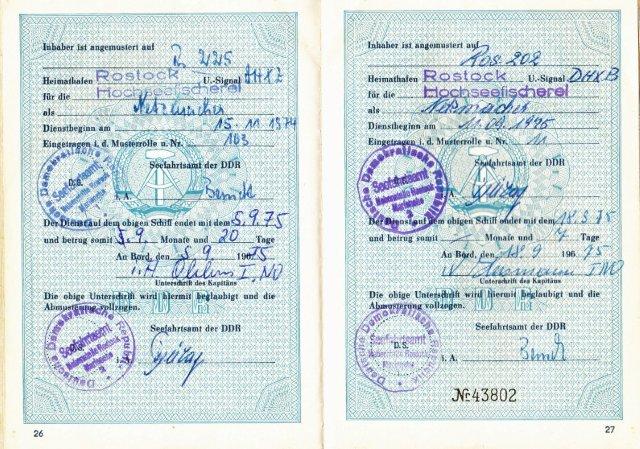 Inhaber ist angemustert auf
R 225
Heimathafen Rostock U.-Signal DHXZ
für die Hochseefischerei
als Netzmacher
Dienstbeginn am 15. 11. 1974
Eingetragen i. d. Musterrolle u. Nr. 103
Seefahrtsamt der DDR
D.S.
i. A.
Der Dienst auf dem obigen Schiff endet mit dem 5. 9. 75
und betrug somit Monate und 20 Tage
An Bord, den 5. 9 1975
Unterschrift des Kapitäns
Die obige Unterschrift wird hiermit beglaubigt und die
Abmusterung vollzogen.
Seefahrtsamt der DDR
D.S.
i. A.
Deutsche Demokratische Republik
Seefahrtsamt
26
Inhaber ist angemustert auf
Ros. 202
Heimathafen Rostock U.-Signal DHXB
für die Hochseefischerei
als Netzmacher
Dienstbeginn am 11. 09. 1975
Eingetragen i. d. Musterrolle u. Nr. 11
Seefahrtsamt der DDR
Deutsche Demokratische Republik
Seefahrtsamt
Der Dienst auf dem obigen Schiff endet mit dem 18. 9. 75
und betrug somit Monate und 7 Tage
An Bord, den 18. 9 1975
Unterschrift des Kapitäns
Die obige Unterschrift wird hiermit beglaubigt und die
Abmusterung vollzogen.
Seefahrtsamt der DDR
D.S.
i. A.
Deutsche Demokratische Republik
Seefahrtsamt
№ 43802
27